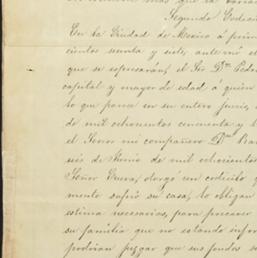 Segundo Codici
En la Ciudad de Mexico á prime
cientos sesenta y siete, ante mi el
que se espresarán, el Sor Dn Pedro
capital y mayor de edad á quien
lo que parece en su entero juicio,
de mil ochocientos cincuenta y
el Señor mi compañero Dn Ra
de mil ochociento
Señor otorgó un codicilo
mento sufrió su casa, lo obligan
estima necesarias, para precaver
su familia que no estando infor
podrian juzgar que sus fondos s